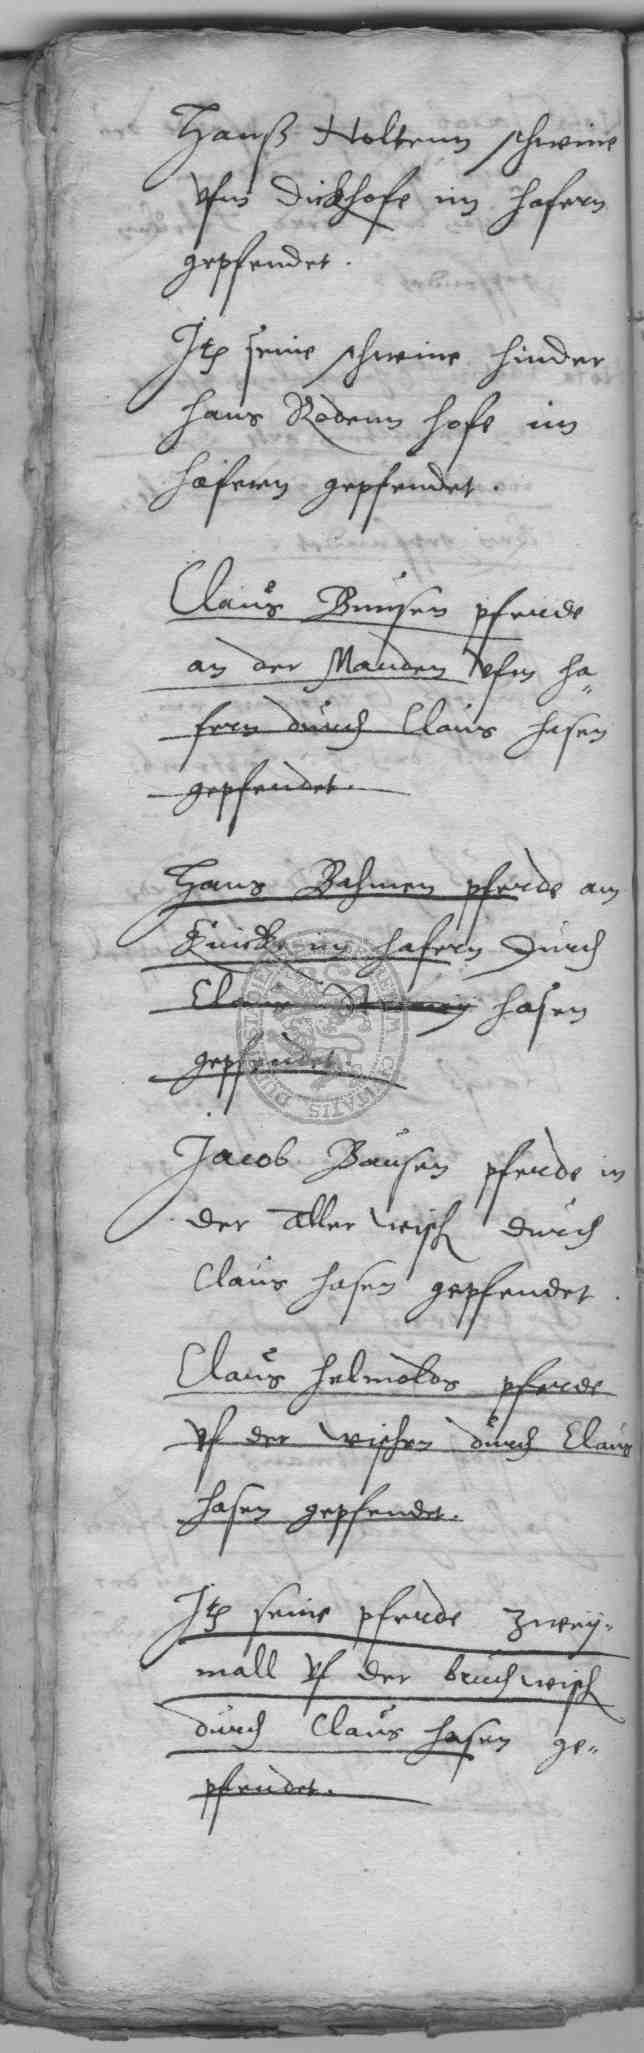 Hanß Noltenn schweine
vfm Dickhofe im hafern
gepfendet.
Itz seine schweine hinder
hans Rodenn hofe im
hafern gepfendet.
Claus Bunsen pferde
an der Manden vfm ha„
fern durch Claus hasen
gepfendet.
Hans Bahmen pferde am
Knicke im hafern durch
Claus hasen
gepfendet.
Jacob Bausen pferde in
der aller wisch durch
Claus hasen gepfendet.
Claus helmolds pferde
vf der wischen durch Claus
hasen gepfendet.
Itz seine pferde zwey„
mall vf der bruchwisch
durch Claus hasen ge„
pfendet.